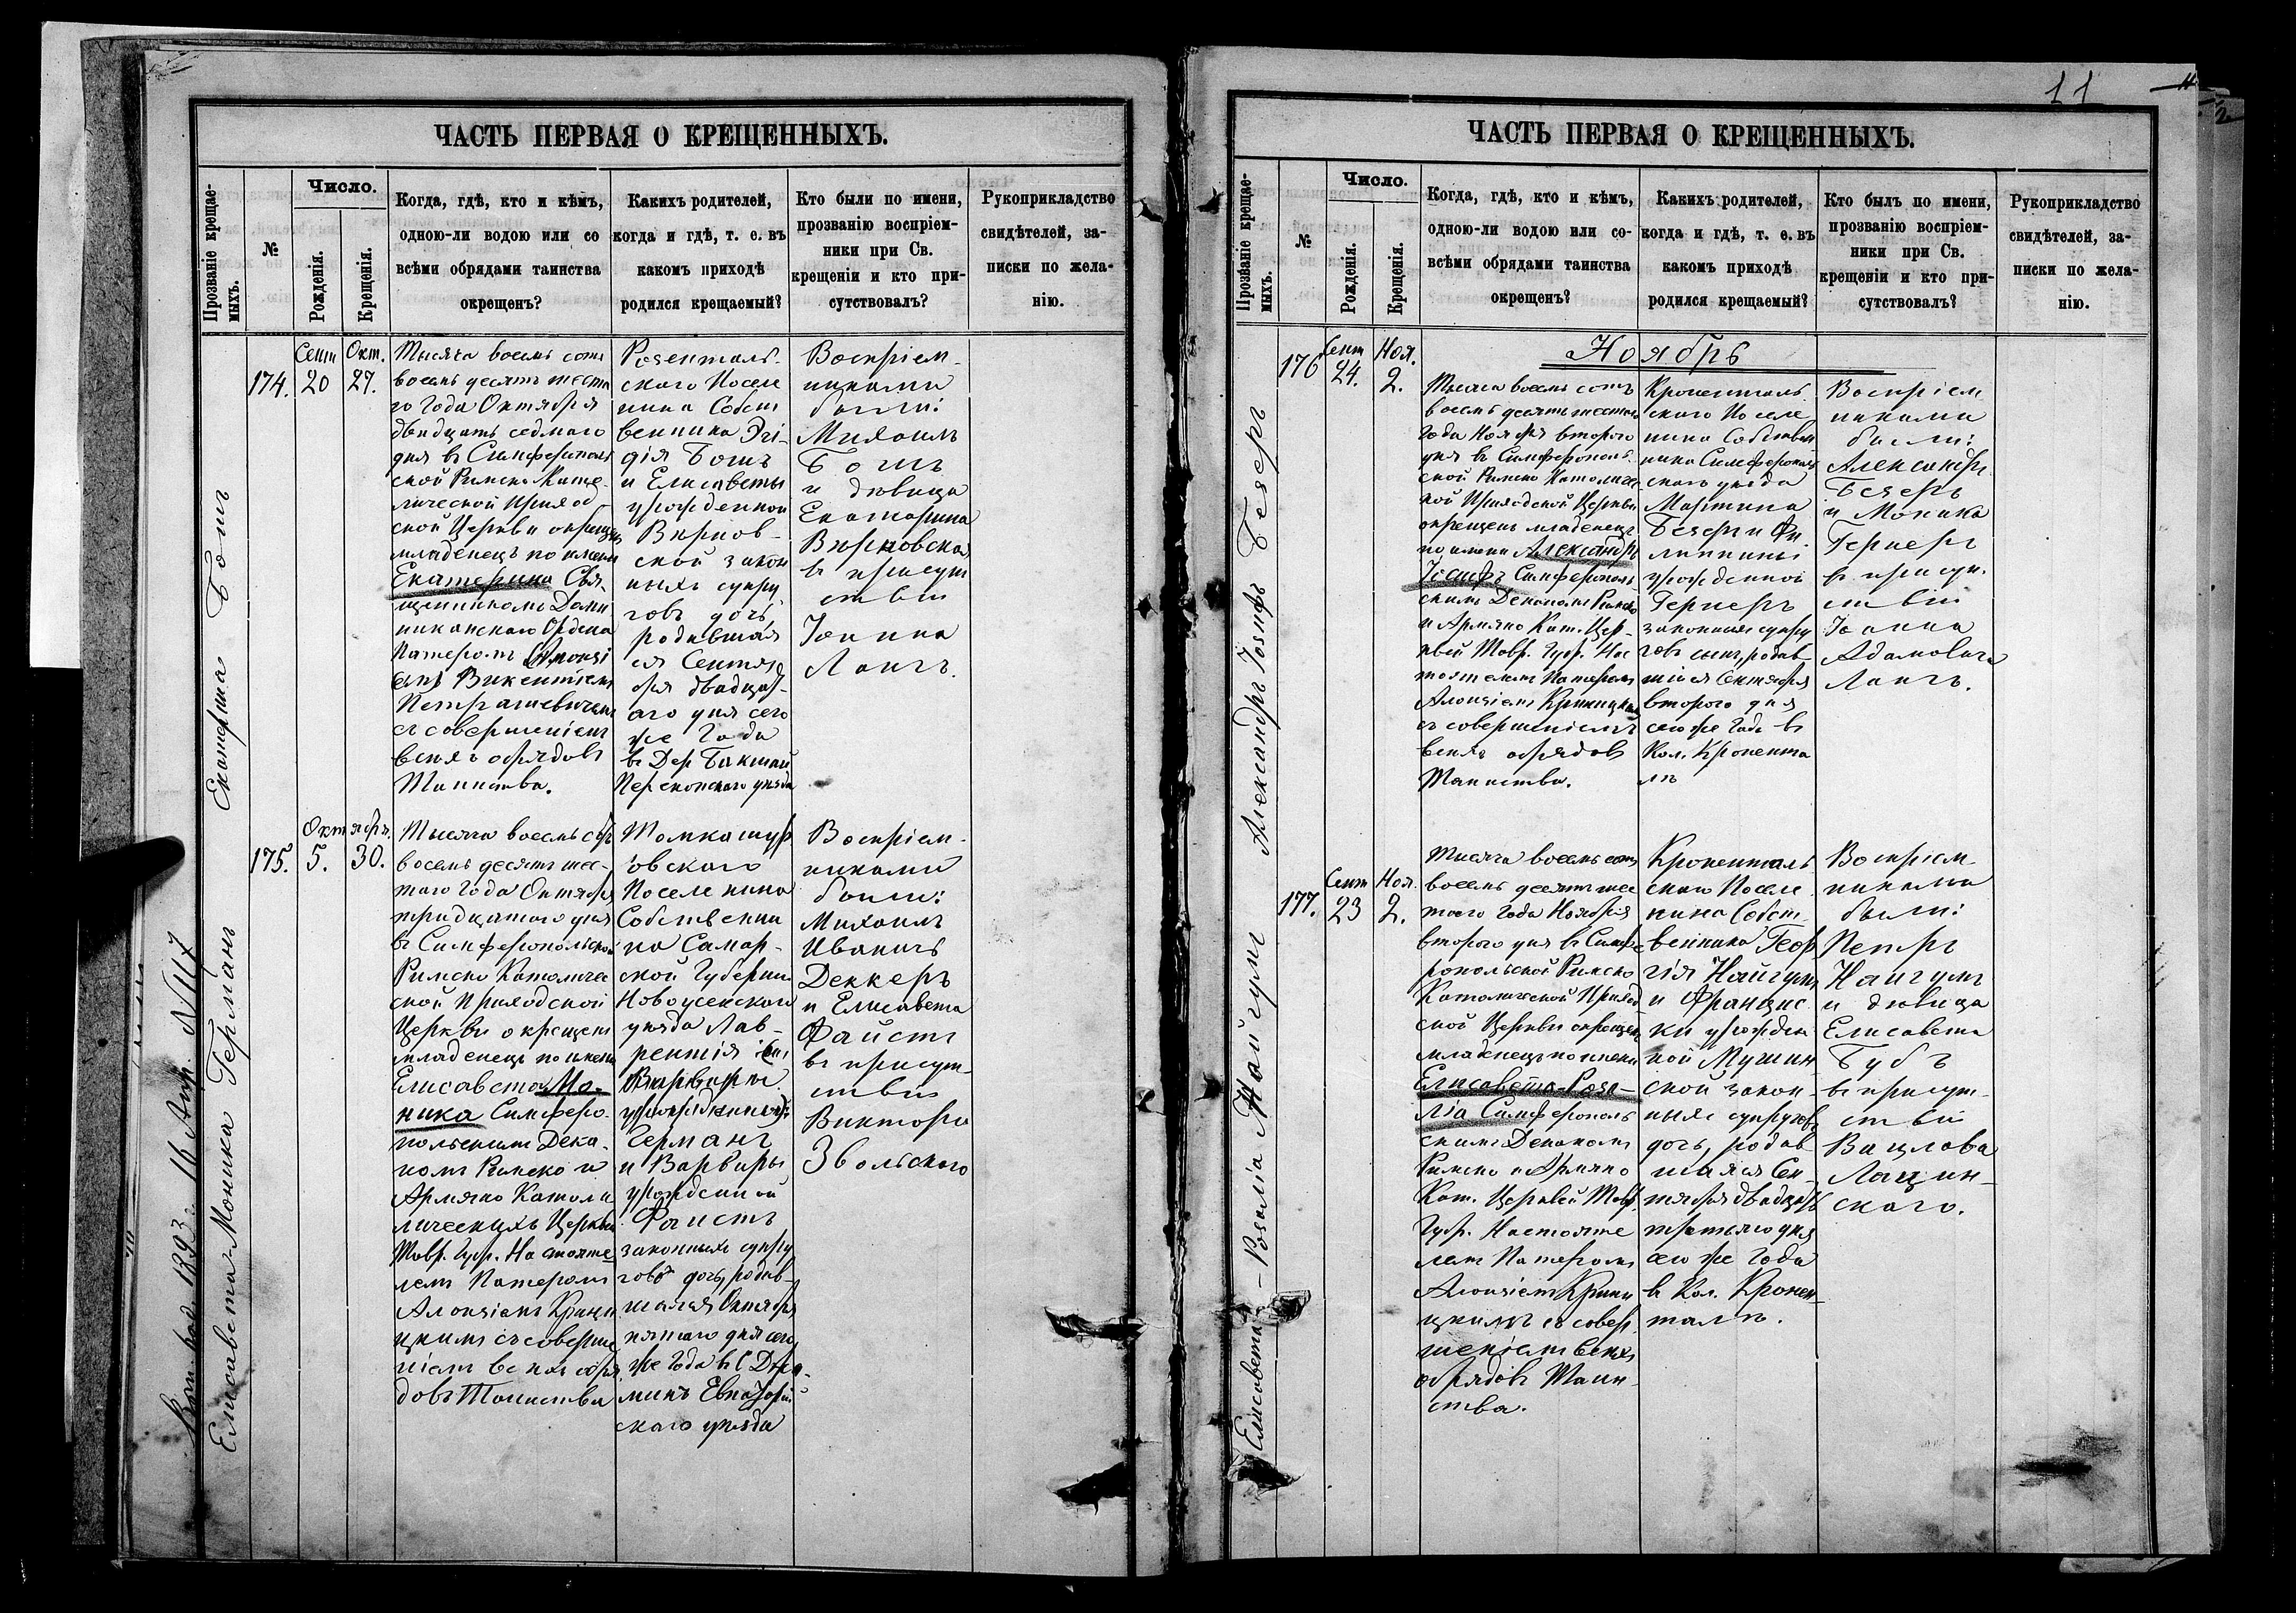 ЧАСТЬ ПЕРВАЯ О КРЕЩЕННЫХЪ.
Прозваніе крещае-
мыхъ.
№
Число.
Рожденія.
Крещенія.
Когда, гдѣ, кто и кѣмъ,
одною-ли водою или со
всѣми обрядами таинства
окрещенъ?
Какихъ родителей,
когда и гдѣ, т. е. въ
какомъ приходѣ
родился крещаемый?
Кто были по имени,
прозванію воспріем-
ники при Св.
крещеніи и кто при-
сутствовалъ?
Рукоприкладство
свидѣтелей, за-
писки по жела-
нію.
Екатерина Бошъ
174.
Сент
20
Окт.
27.
Тысяча восемь сотъ
восемь десятъ шеста
го года Октября
двадцать седмаго
дня въ Симферополь
ской Римско Като-
лической Приход-
ской Церкви окрещенъ
младенецъ по имени
Екатерина Свя-
щенникомъ Доми
никанскаго Ордена
Патеромъ
Викентіемъ
Петрашевичемъ
съ совершеніемъ
всехъ обрядовъ
Таинства.
Розенталь-
скаго Поселя
нина Собст
венника Эги-
дія Бошъ
и Елисаветы
урожденной
Вирнов-
ской закон
ныхъ супру
говъ дочь,
родившая
ся Сентя
бря двадцат-
аго дня сего
же Года
въ Дер Бакшай
Перекопскаго уѣзда
Воспріем-
никами
были:
Михаилъ
Бошъ
и дѣвица
Екатерина
Вирновская
въ присут
ствіи
Іоанна
Лангъ.
Елисавета-Моника Германъ
175.
Октября.
5.
30.
Тысяча восемь сотъ
восемь десятъ шес-
таго года Октября
тридцатаго дня
въ Симферопольской
Римско Католиче
ской Приходской
Церкви окрещенъ
младенецъ по имени
Елисавета Мо-
ника Симферо-
польскимъ Дека-
номъ Римско и
Армяно Католи
ческихъ Церквей
Тавр. Губ. Настояте
лемъ Патеромъ
Алоизіемъ Крини
цкимъ съ соверше
ніемъ всехъ обря
довъ Таинства
Томкашур
овскаго
Поселенина
Собственни
ка Самар-
ской Губерніи
Новоузенскаго
уѣзда Лав-
рентія
Варвары
урожденной
Германъ
и Варвары
урожденной
Фаистъ
законныхъ супру
говъ дочь, родив-
шаяся Октября
пятаго дня сего
же Года въ С
минъ Евпаторій
скаго уѣзда
Воспріем-
никами
были:
Михаилъ
Иванъ
Деккеръ
и Елисавета
Файстъ
въ присут-
ствіи
Виктора
Звольскаго
Коп. вод. 1893 г. 16 Апр. №117
11
ЧАСТЬ ПЕРВАЯ О КРЕЩЕННЫХЪ.
Прозваніе крещае-
мыхъ.
№
Число.
Рожденія.
Крещенія.
Когда, гдѣ, кто и кѣмъ,
одною-ли водою или со-
всѣми обрядами таинства
окрещенъ?
Какихъ родителей,
когда и гдѣ, т. е. въ
какомъ приходѣ
родился крещаемый?
Кто былъ по имени,
прозванію воспріем-
ники при Св.
крещеніи и кто при-
сутствовалъ?
Рукоприкладство
свидѣтелей, за-
писки по жела-
нію.
Ноябрь
Александръ Іосифъ Безеръ
176
Сент
24.
Ноя.
2.
Тысяча восемь сотъ
восемь десятъ шестаго
Года Ноября втораго
дня въ Симферополь-
ской Римско Католиче
ской Приходской Церкви
окрещенъ младенецъ
по имени Александръ
Іосифъ Симферополь
скимъ Деканомъ Римско
и Армяно Кат. Цер-
квей Тавр. Губр. Нас
тоятелемъ Патеромъ
Алоизіемъ Криницкимъ
съ совершеніемъ
всехъ обрядовъ
Таинства.
Кроненталь
скаго Поселя
нина Собствен
ника Симферополь
скаго уѣзда
Мартина
Безеръ и Фи
липпины
урожденной
Гернеръ
законныхъ супру
говъ сынъ, родив-
шійся Сентября
втораго дня
сего же Года въ
Кол. Кронента
лъ
Воспріем
никами
были:
Александръ
Безеръ
и Моника
Гернеръ
въ присут-
ствіи
Іоанна
Адамовича
Лангъ.
Елисавета-Розалія Найгумъ
177.
Сент
23
Ноя.
2.
Тысяча восемь сотъ
восемь десятъ шес
таго Года Ноября
втораго дня въ Симфе
ропольской Римско
Католической Приход
ской Церкви окрещенъ
младенецъ по имени
Елисавета-Роза-
лія Симферополь
скимъ Деканомъ
Римско и Армяно
Кат. Церквей Тавр.
Губр. Настояте
лемъ Патеромъ
Алоизіемъ Крини
цкимъ съ совер-
шеніемъ всехъ
обрядовъ Таин-
ства.
Кроненталь
скаго Поселя
нина Собст-
венника Геор
гія Найгумъ
и Францис
ки урожден
ной Мушин
ской закон-
ныхъ супруговъ
дочь, родив
шаяся Сен
тября двадцать
третьяго дня
сего же Года
въ Кол. Кронен-
талъ.
Воспріем-
никами
были:
Петръ
Найгумъ
и дѣвица
Елисавета
Бубъ
въ присут-
ствіи
Вацлова
Лацин-
скаго.